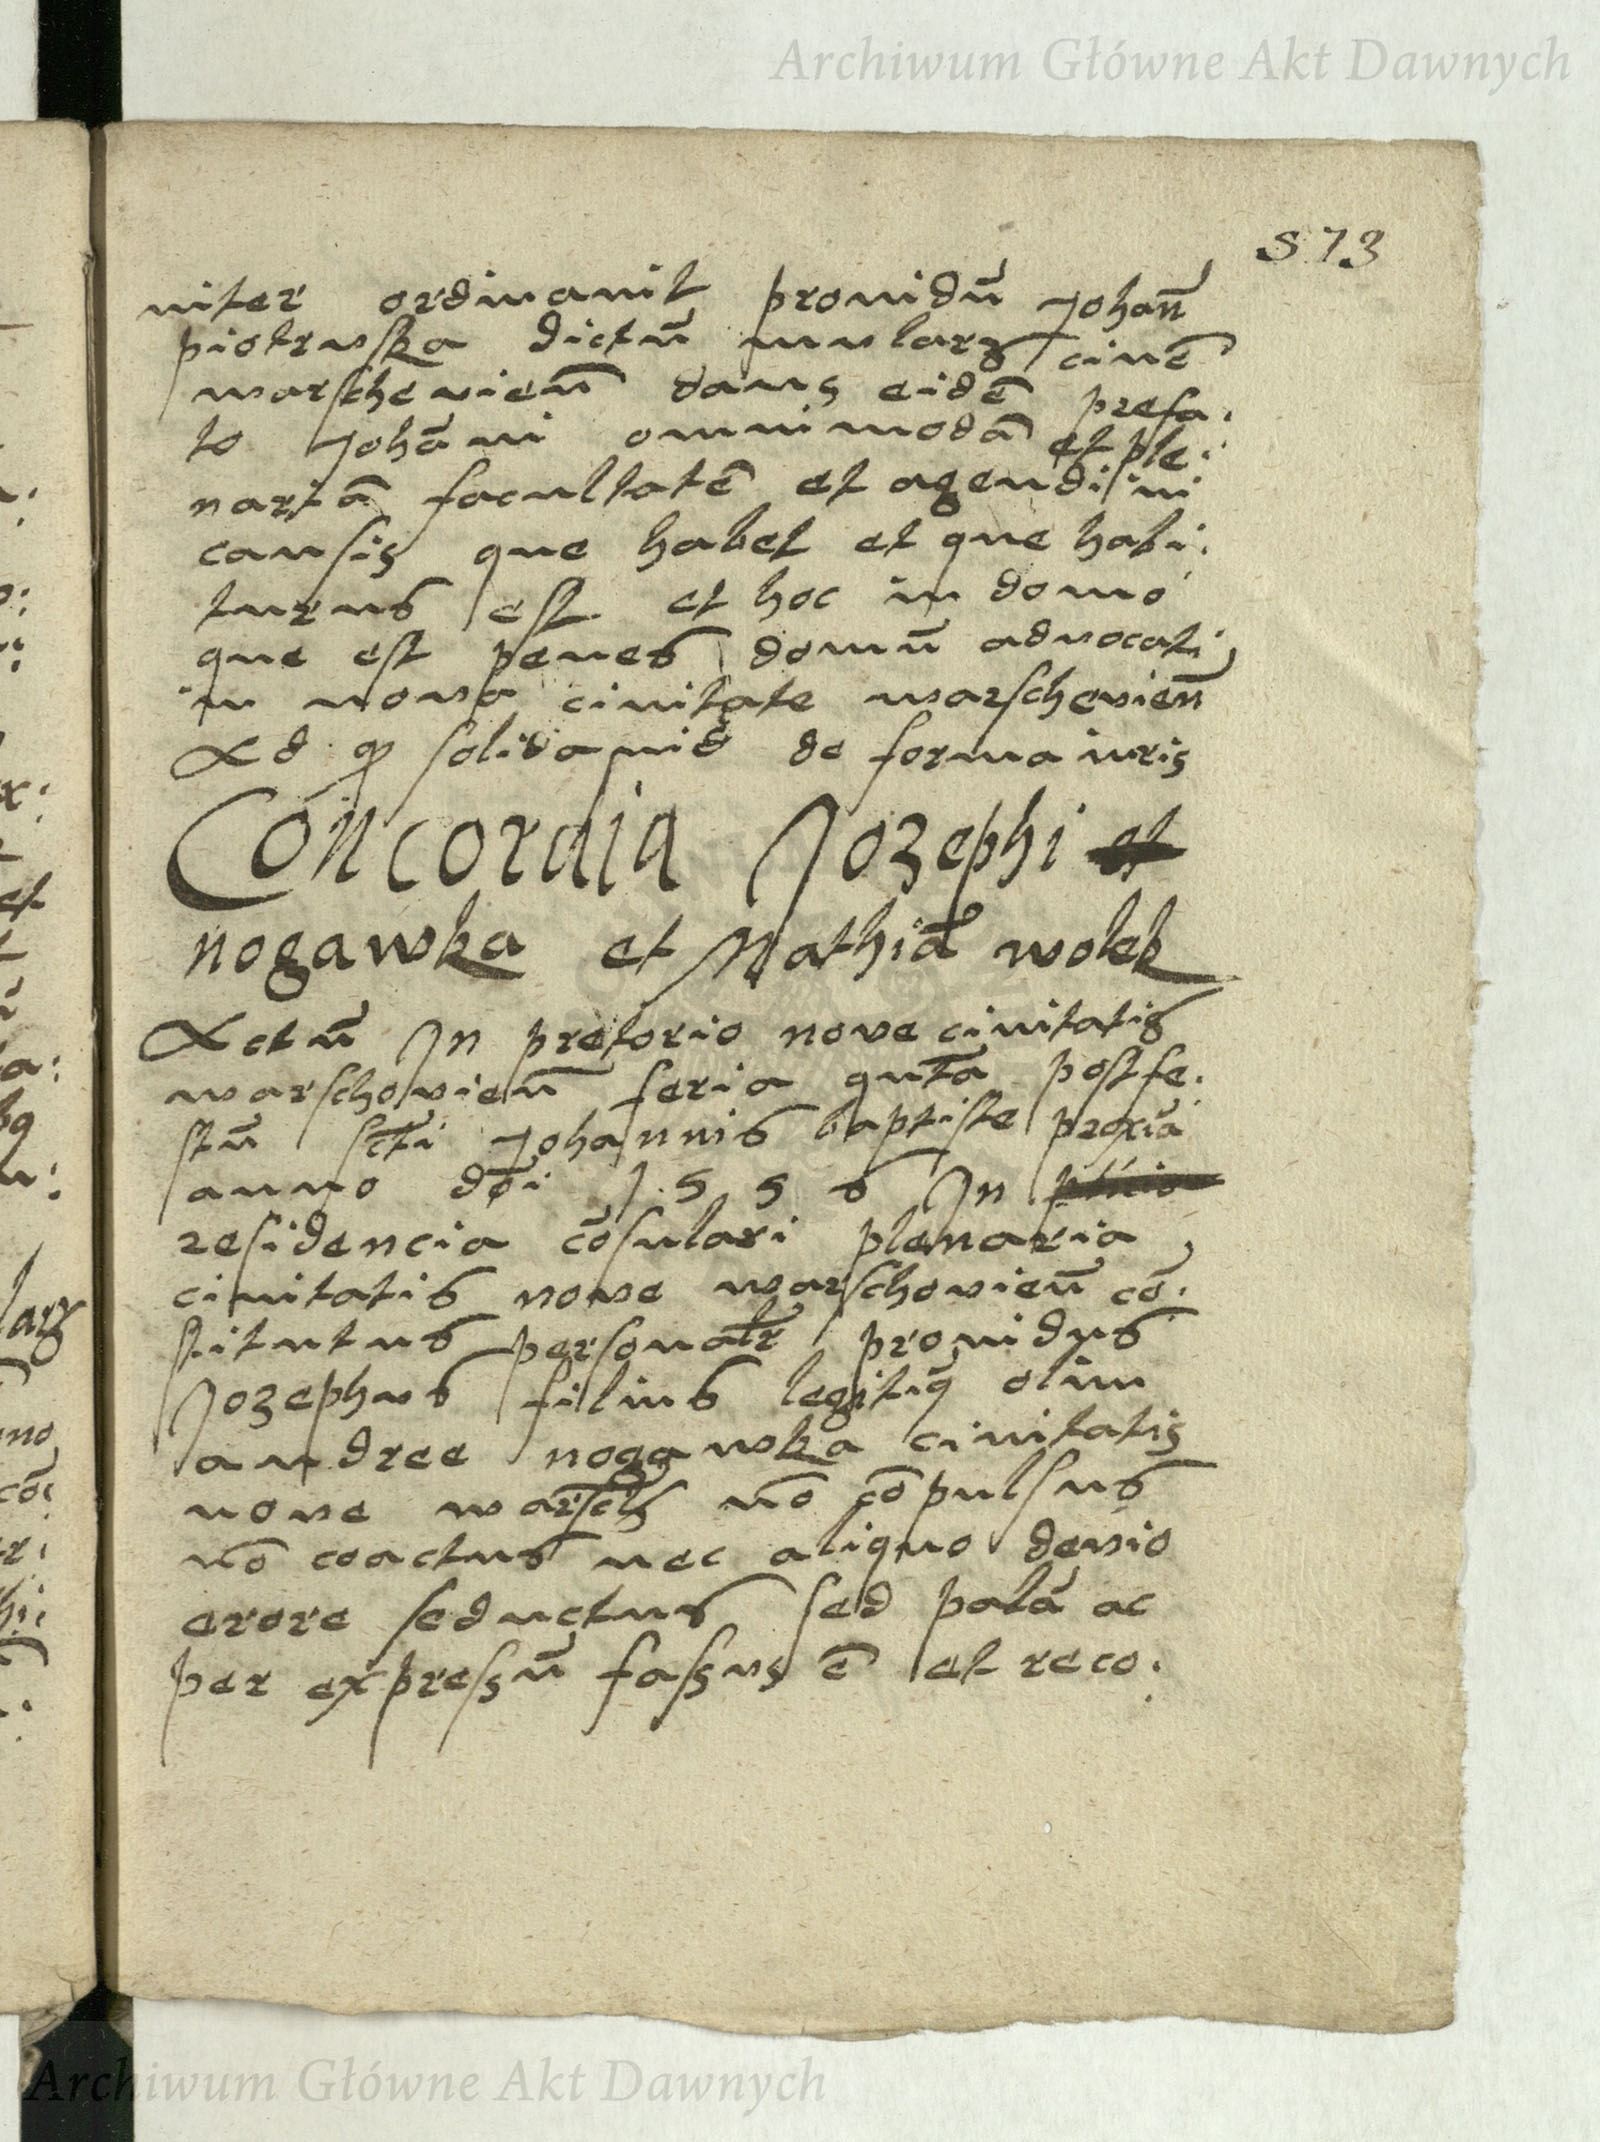 Archiwum Główne Akt Dawnych
573
niter ordinavit providū Johan̄
piotrusska dictū mularz civē
warscheviēn dans eidē prefa:
to Johāni omnimodā et ple:
nariā facultatē et agendi in
causis que habet et que habi:
turus est et hoc in domo
que est penes domū advocati
in nova civitate warscheviēn
Ad q solidavid de forma iuris
Concordia Jozephi et
nogawka et Mathiā wolek
Actū In pretorio nove civitatis
warschoviēn feria quta post fe:
stū scti Johannis baptiste proxīa
anno dōi 1556 In
residencia cōsulari plenaria
civitatis nove warschoviēn cō:
stitutus personalr providus
Jozephus filius legitiq olim
andree nogawka civitatis
nove warsch nō cōpulsus
nō coactus nec aliquo devio
erore seductus sed palā ac
per expressū fassus ē et reco:
Archiwum Główne Akt Dawnych